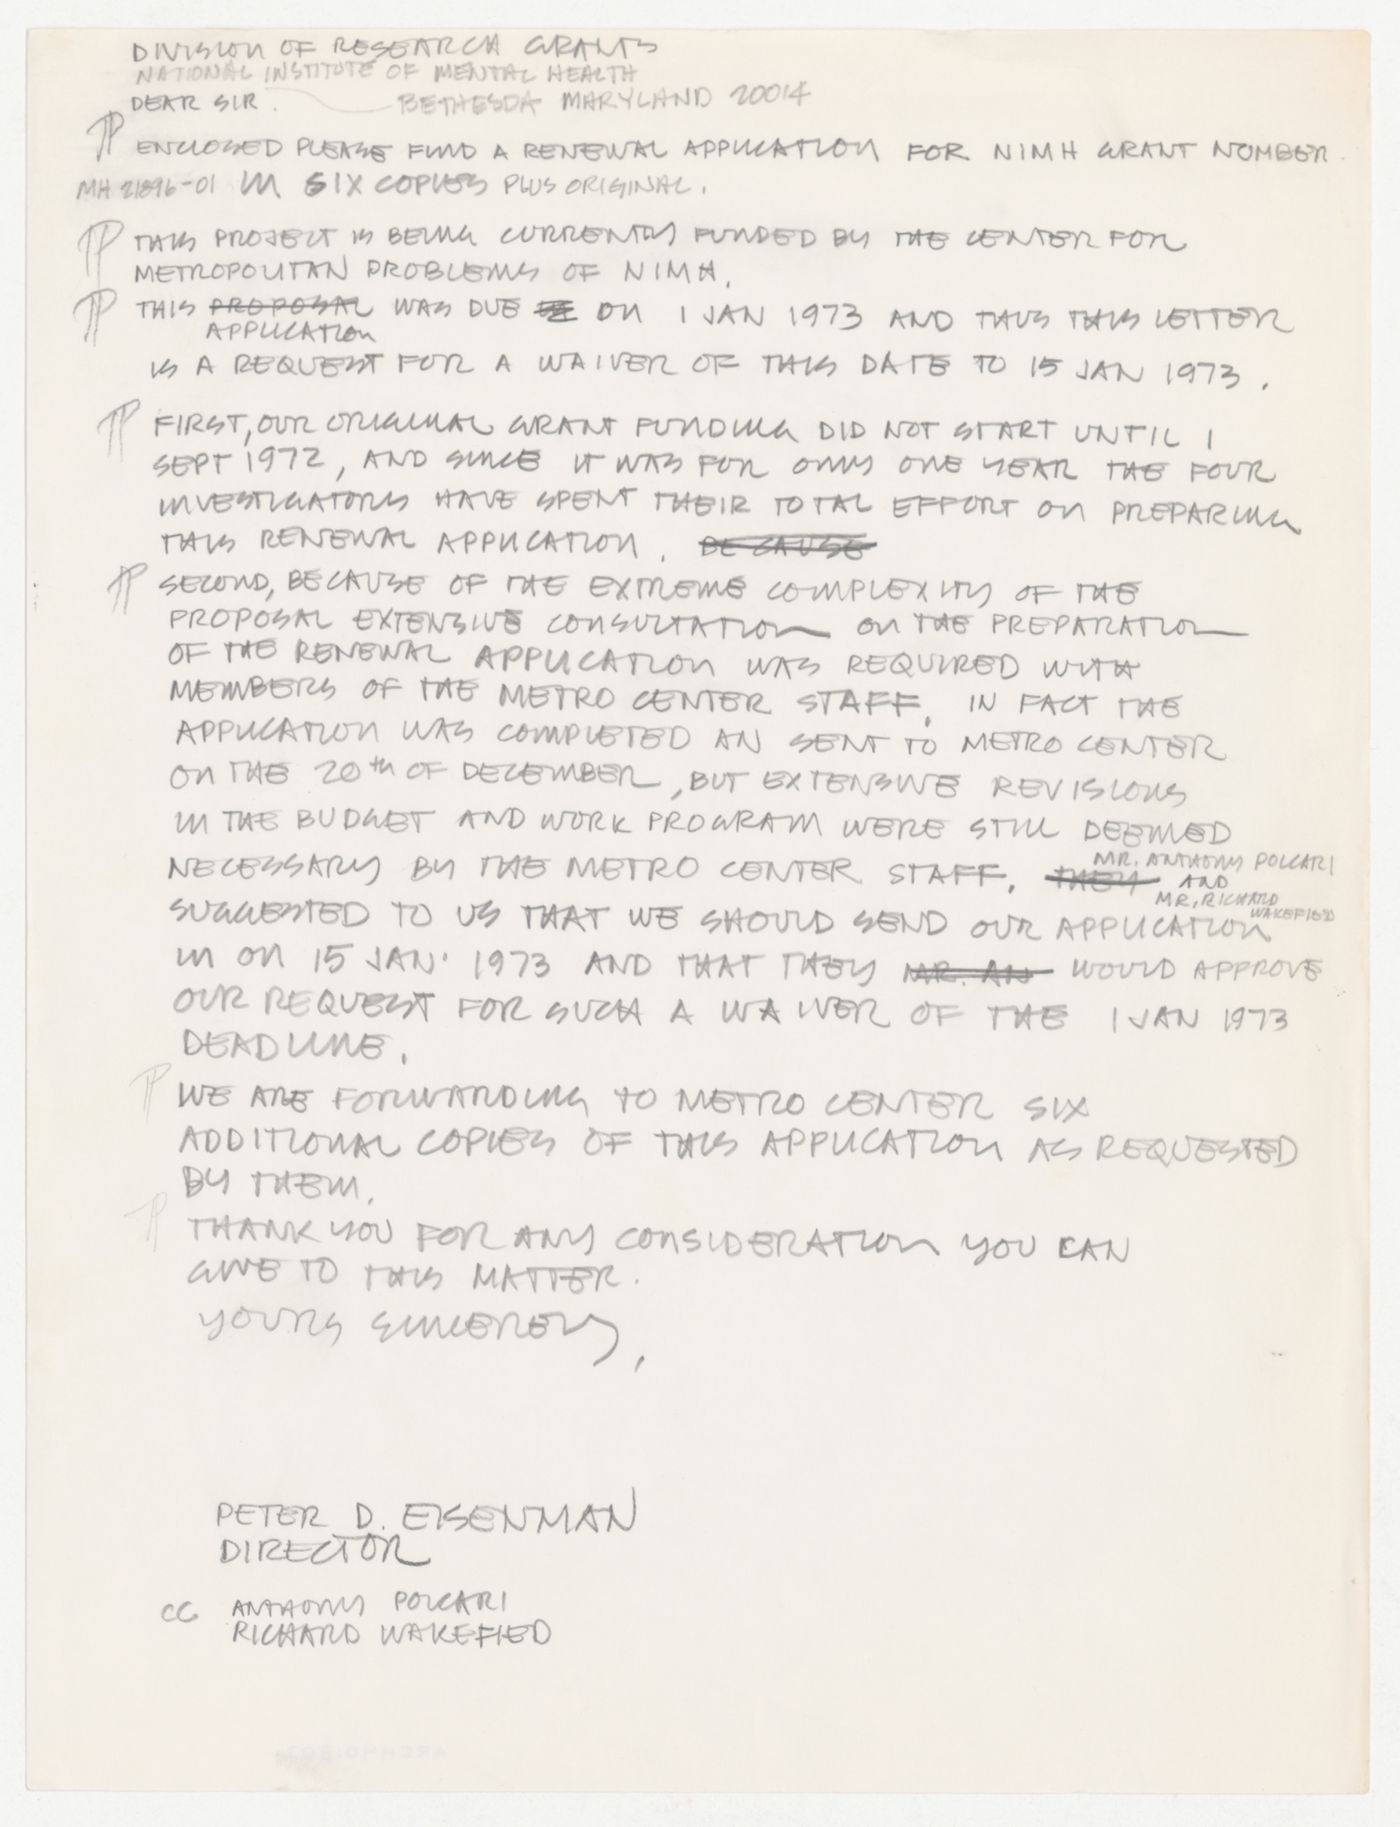 DIVISION OF RESEARCH GRANTS
NATIONAL INSTITUTE OF MENTAL HEALTH
DEAR SIR. BETHESDA MARYLAND 20014
ENCLOSED PLEASE FIND A RENEWAL APPLICATION FOR NIMH GRANT NUMBER
MH 21896-01 IN SIX COPIES PLUS ORIGINAL.
THIS PROJECT IS BEING CURRENTLY FUNDED BY THE CENTER FOR
METROPOLITAN PROBLEMS OF NIMH.
THIS PROPOSAL WAS DUE ON 1 JAN 1973 AND THUS THIS LETTER
APPLICATION
IS A REQUEST FOR A WAIVER OF THIS DATE TO 15 JAN 1973.
FIRST, OUR ORIGINAL GRANT FUNDING DID NOT START UNTIL 1
SEPT 1972, AND SINCE IT WAS FOR ONLY ONE YEAR THE FOUR
INVESTIGATORS HAVE SPENT THEIR TOTAL EFFORT ON PREPARING
THIS RENEWAL APPLICATION. BECAUSE
SECOND, BECAUSE OF THE EXTREME COMPLEXITY OF THE
PROPOSAL EXTENSIVE CONSULTATION ON THE PREPARATION
OF THE RENEWAL APPLICATION WAS REQUIRED WITH
MEMBERS OF THE METRO CENTER STAFF. IN FACT THE
APPLICATION WAS COMPLETED AN SENT TO METRO CENTER
ON THE 20th OF DECEMBER, BUT EXTENSIVE REVISIONS
IN THE BUDGET AND WORK PROGRAM WERE STILL DEEMED
NECESSARY BY THE METRO CENTER STAFF. THEY MR. ANTHONY POLCARI
AND
MR. RICHARD
WAKEFIED
SUGGESTED TO US THAT WE SHOULD SEND OUR APPLICATION
IN ON 15 JAN. 1973 AND THAT THEY MR. AN WOULD APPROVE
OUR REQUEST FOR SUCH A WAIVER OF THE 1 JAN 1973
DEADLINE.
WE ARE FORWARDING TO METRO CENTER SIX
ADDITIONAL COPIES OF THIS APPLICATION AS REQUESTED
BY THEM.
THANK YOU FOR ANY CONSIDERATION YOU CAN
GIVE TO THIS MATTER.
YOURS SINCERELY,
PETER D. EISENMAN
DIRECTOR
CC ANTHONY POLCARI
RICHARD WAKEFIED